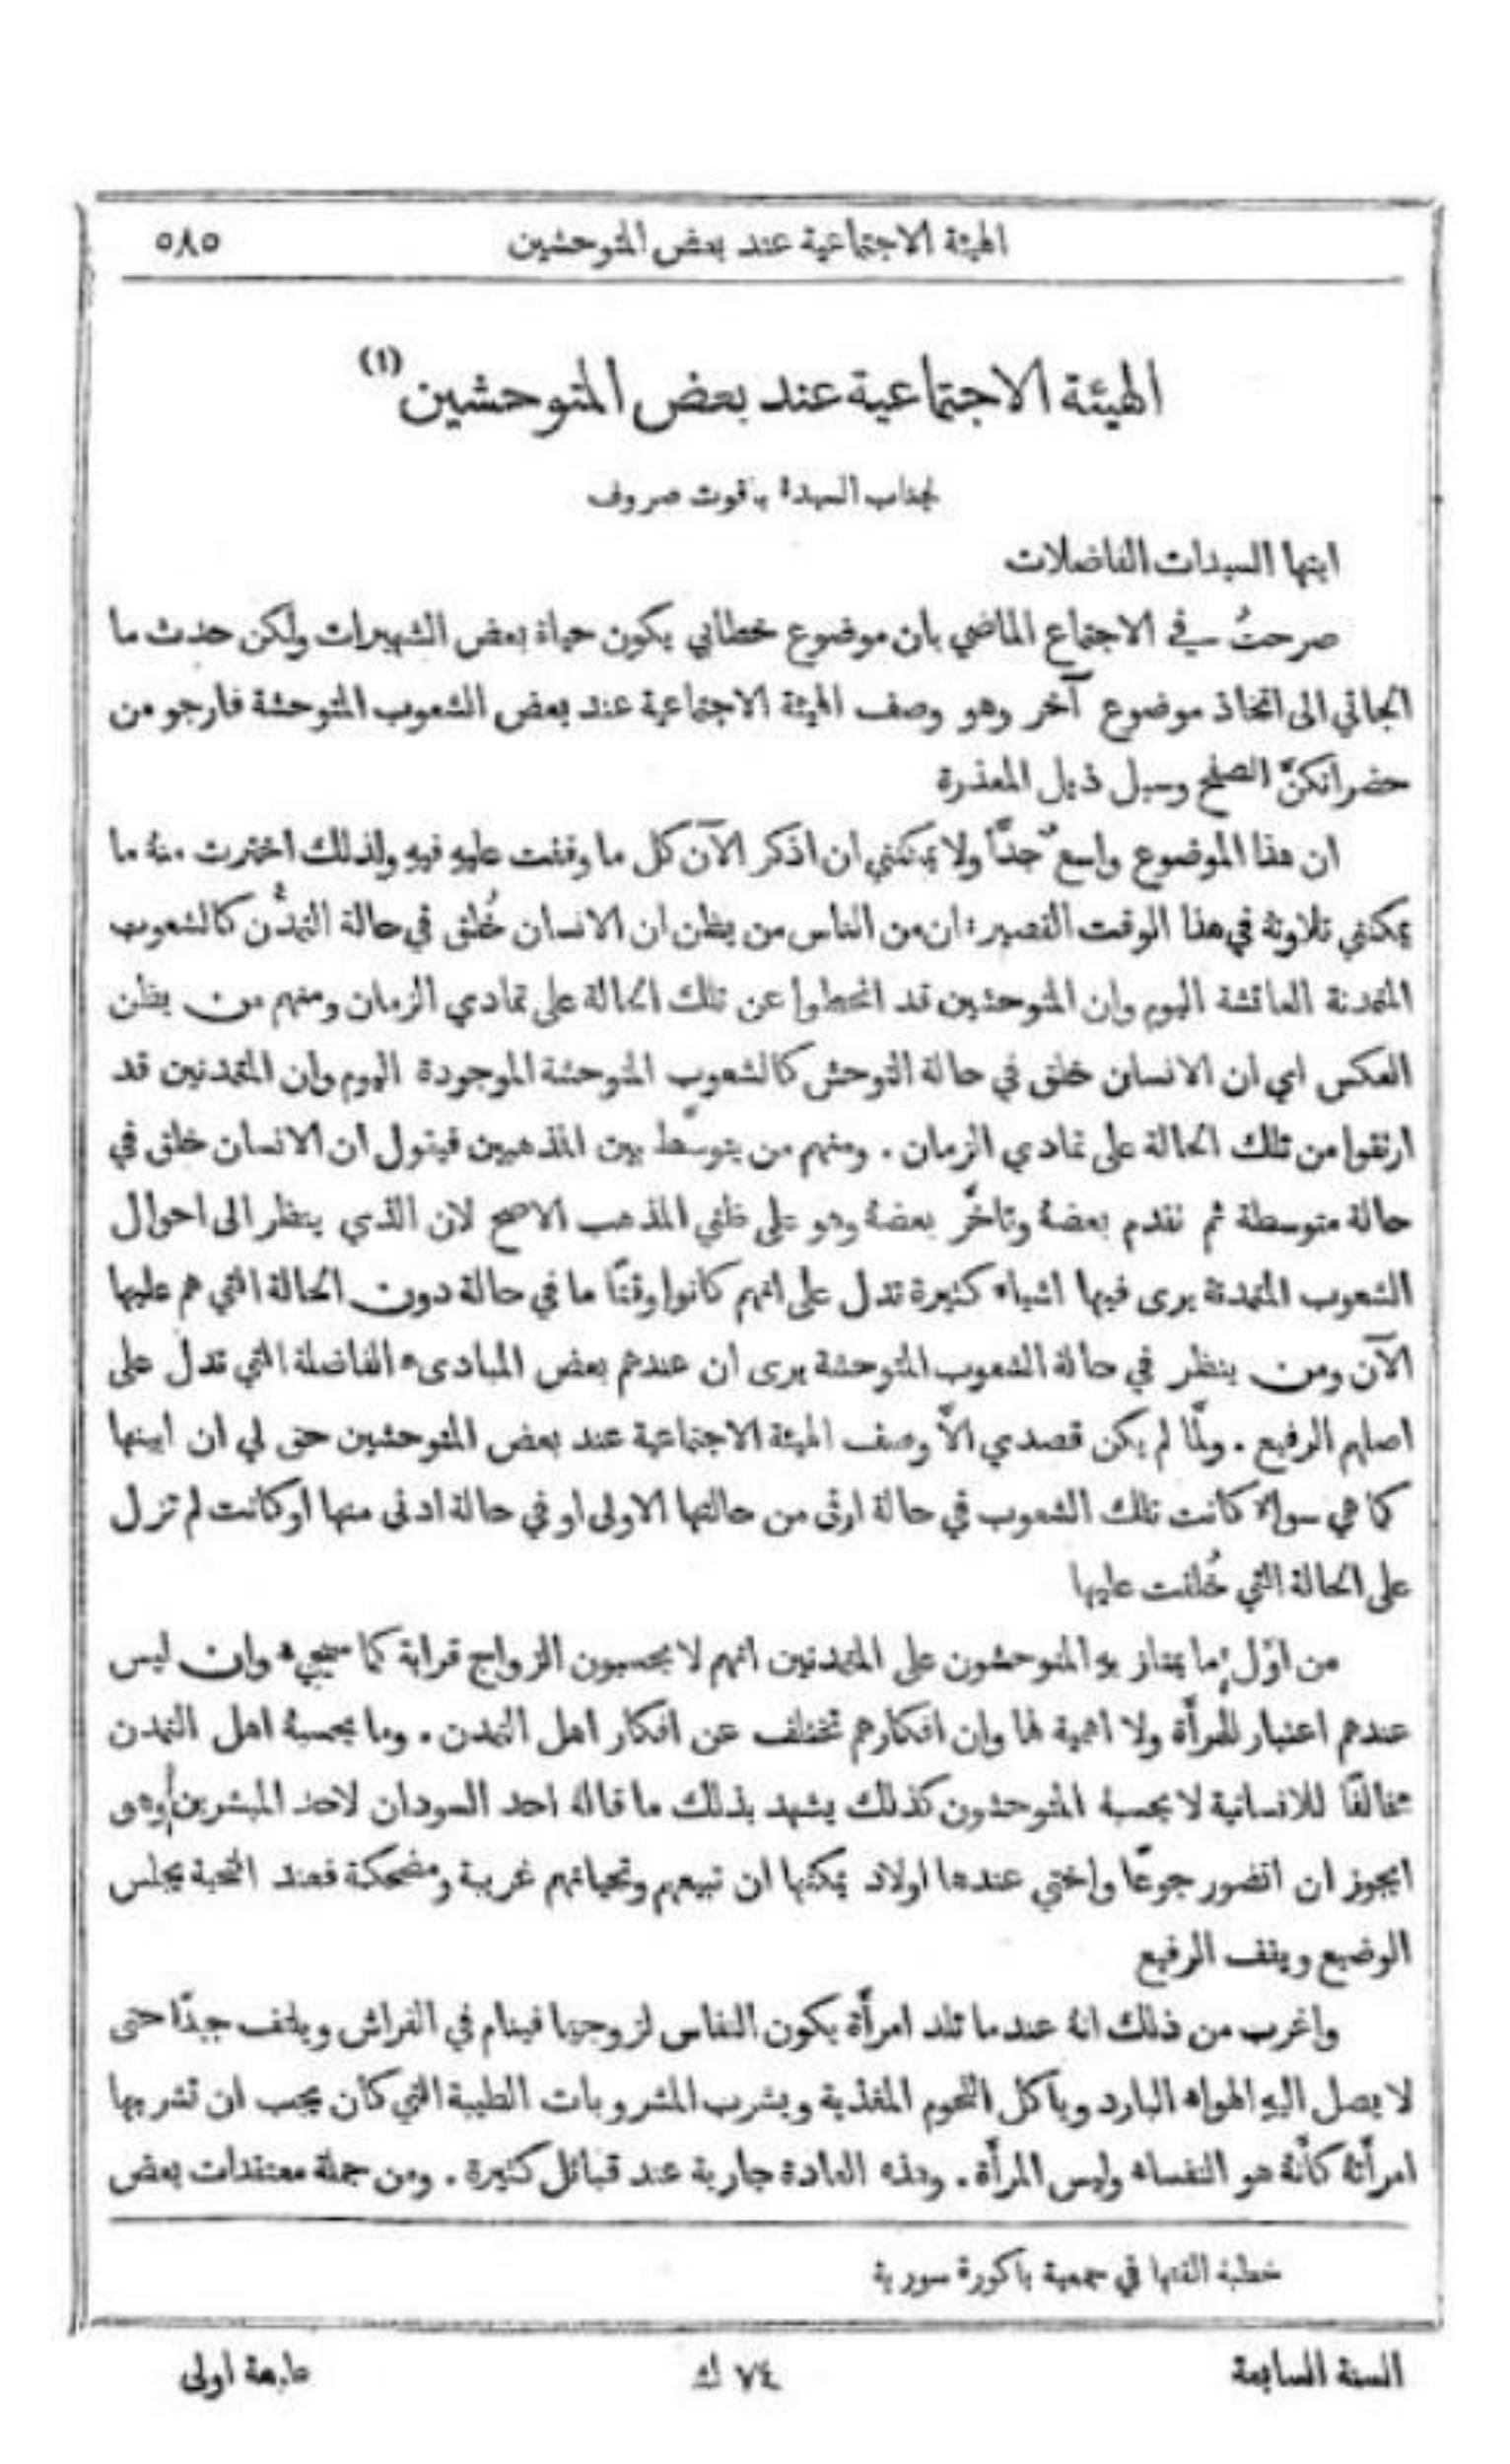 الهيئة الاجتماعية عند بعض المتوحشين ٥٨٥
الهيئة الاجتماعية عند بعض المتوحشين (١)
لجناب السيدة ياقوت صروف
ايتها السيدات الفاضلات
صرحتُ في الاجتماع الماضي بان موضوع خطابي يكون حياة بعض الشهيرات ولكن حدث ما
الجاني الى اتخاذ موضوع آخر وهو وصف الهيئة الاجتماعية عند بعض الشعوب المتوحشة فارجو من
حضراتكنّ الصفح وسبل ذيل المعذرة
ان هذا الموضوع واسعٌ جدًّا ولا يمكنني ان اذكر الآن كل ما وقفت عليهِ فيهِ ولذلك اخترت منهُ ما
يمكنني تلاوتهُ في هذا الوقت القصير: ان من الناس من يظن ان الانسان خُلق في حالة التمدُّن كالشعوب
المتمدنة العائشة اليوم وان المتوحشين قد انحطوا عن تلك الحالة على تمادي الزمان ومنهم من يظن
العكس اي ان الانسان خلق في حالة التوحش كالشعوب المتوحشة الموجودة اليوم وان المتمدنين قد
ارتقوا من تلك الحالة على تمادي الزمان . ومنهم من يتوسَّط بين المذهبين فيقول ان الانسان خلق في
حالة متوسطة ثم تقدم بعضهُ وتاخَّر بعضهُ وهو على ظني المذهب الاصح لان الذي ينظر الى احوال
الشعوب المتمدنة يرى فيها اشياء كثيرة تدل على انهم كانوا وقتًا ما في حالة دون الحالة التي هم عليها
الآن ومن ينظر في حالة الشعوب المتوحشة يرى ان عندهم بعض المبادىء الفاضلة التي تدل على
اصلهم الرفيع . ولمَّا لم يكن قصدي الاَّ وصف الهيئة الاجتماعية عند بعض المتوحشين حق لي ان ابينها
كما هي سواءٌ كانت تلك الشعوب في حالة ارقى من حالتها الاولى او في حالة ادنى منها او كانت لم تزل
على الحالة التي خُلقت عليها
من اوّل ما يمتاز بهِ المتوحشون على المتمدنين انهم لا يحسبون الزواج قرابة كما سيجيء وان ليس
عندهم اعتبار للمرأة ولا اهمية لها وان افكارهم تختلف عن افكار اهل التمدن . وما يحسبهُ اهل التمدن
مخالفًا للانسانية لا يحسبهُ المتوحشون كذلك يشهد بذلك ما قالهُ احد السودان لاحد المبشرين وهو
ايجوز ان اتضور جوعًا واختي عندها اولاد يمكنها ان تبيعهم وتحياتهم غريبة ومضحكة فعند التحية يجلس
الوضيع ويقف الرفيع
واغرب من ذلك انهُ عندما تلد امرأة يكون النفاس لزوجها فينام في الفراش ويلتف جيدًا حتى
لا يصل اليهِ الهواء البارد وياكل اللحوم المغذية ويشرب المشروبات الطيبة التي كان يجب ان تشربها
امرأتهُ كأنهُ هو النفساء وليس المرأة . وهذه العادة جارية عند قبائل كثيرة . ومن جملة معتقدات بعض
خطبة القتها في جمعية باكورة سورية
السنة السابعة ٧٤ ك طبعة اولى